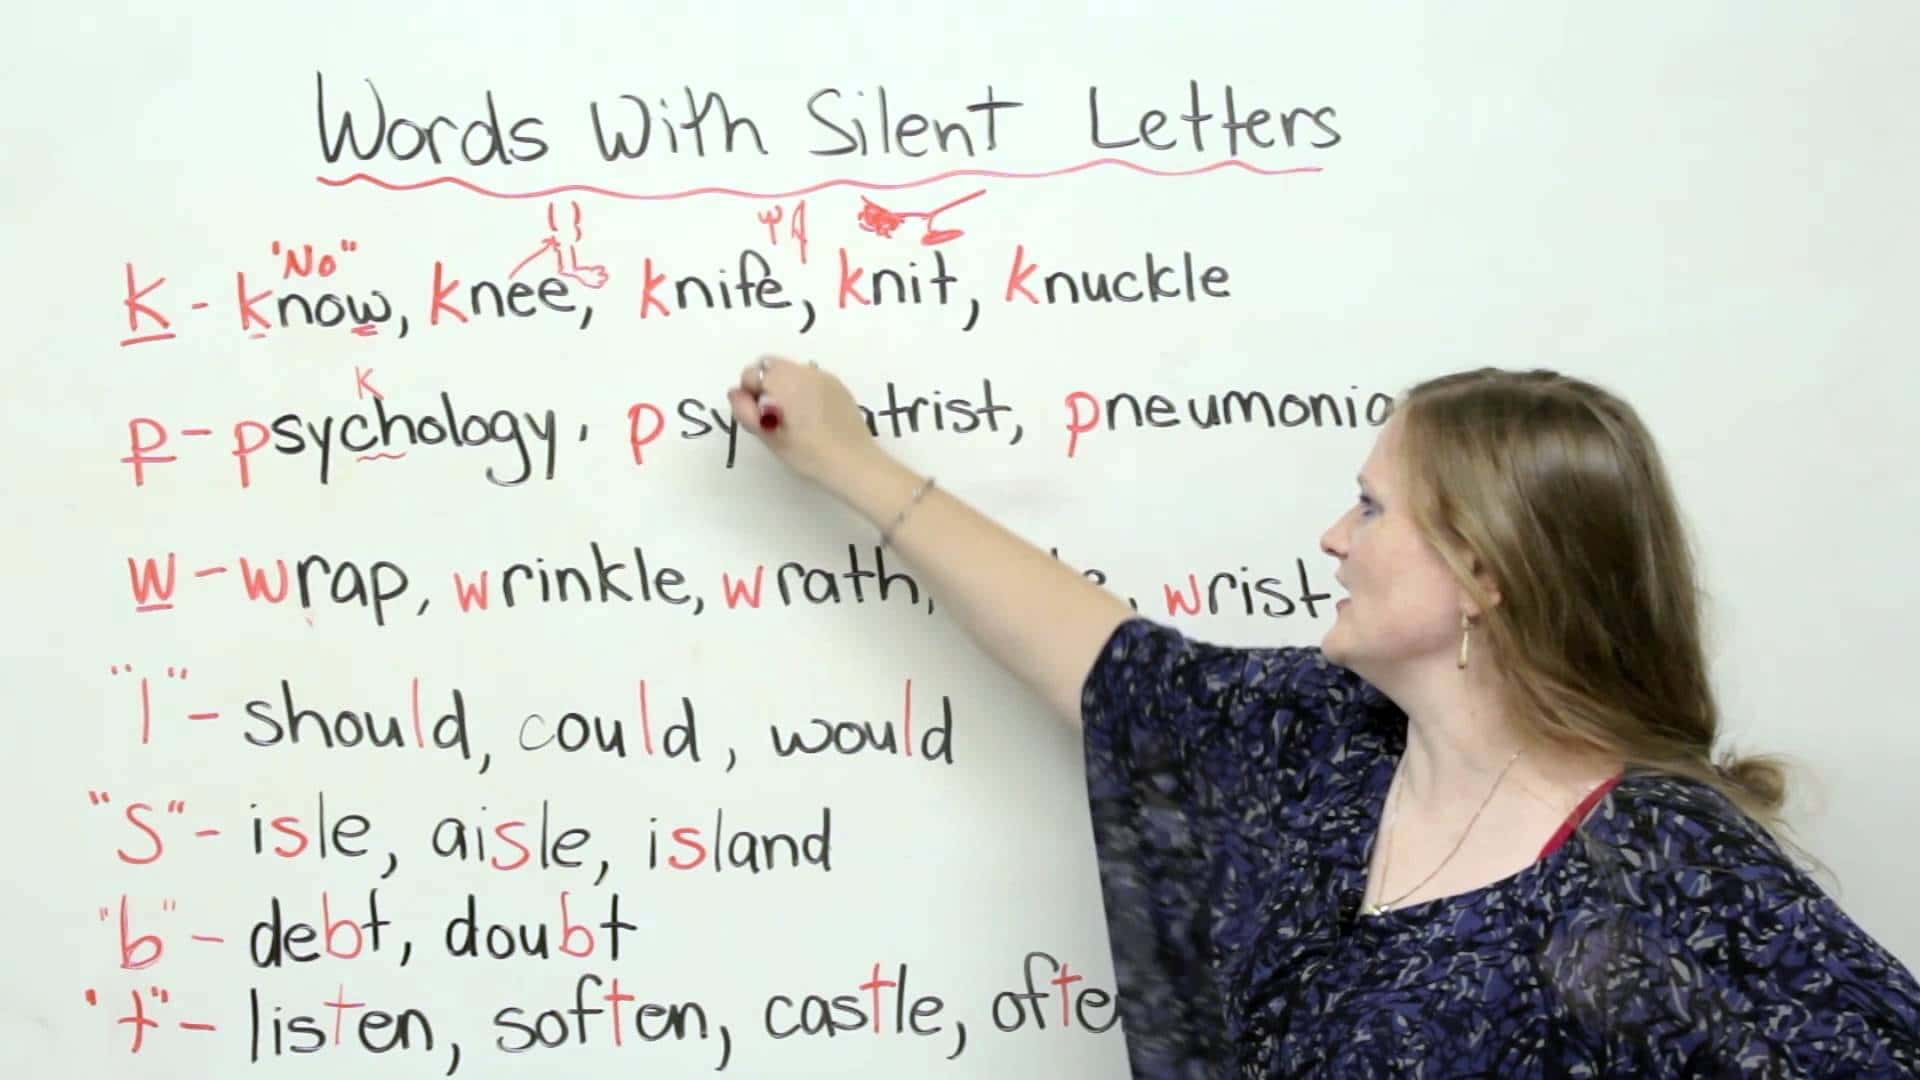 Words With Silent Letters
"No"
k - know, knee, knife, knit, knuckle
K
p - psychology, pneumonia
w - wrap, wrinkle, wrath, wrist
"l" - should, could, would
"S" - isle, aisle, island
"b" - debt, doubt
"t" - listen, soften, castle, often